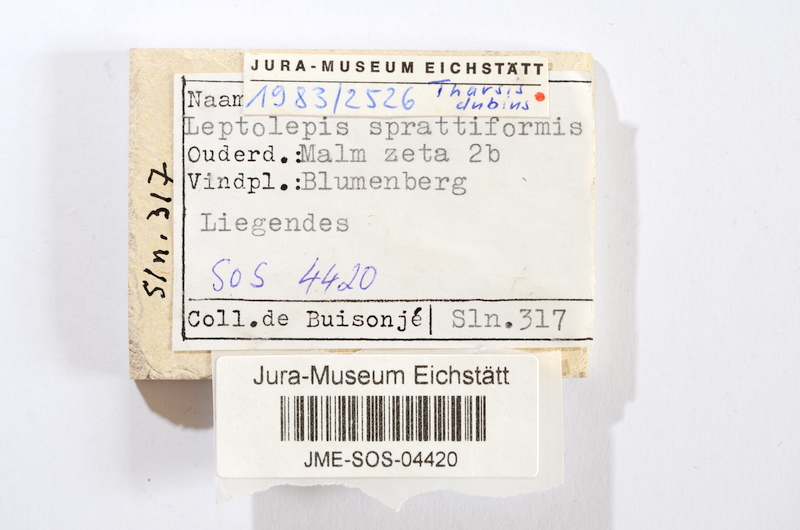 JURA-MUSEUM EICHSTÄTT
1983/2526 Tharsis
dubius
Naam
Leptolepis sprattiformis
Ouderd.:Malm zeta 2b
Vindpl.:Blumenberg
Liegendes
SOS 4420
Coll.de Buisonjé Sln.317
Sln. 317
Jura-Museum Eichstätt
JME-SOS-04420